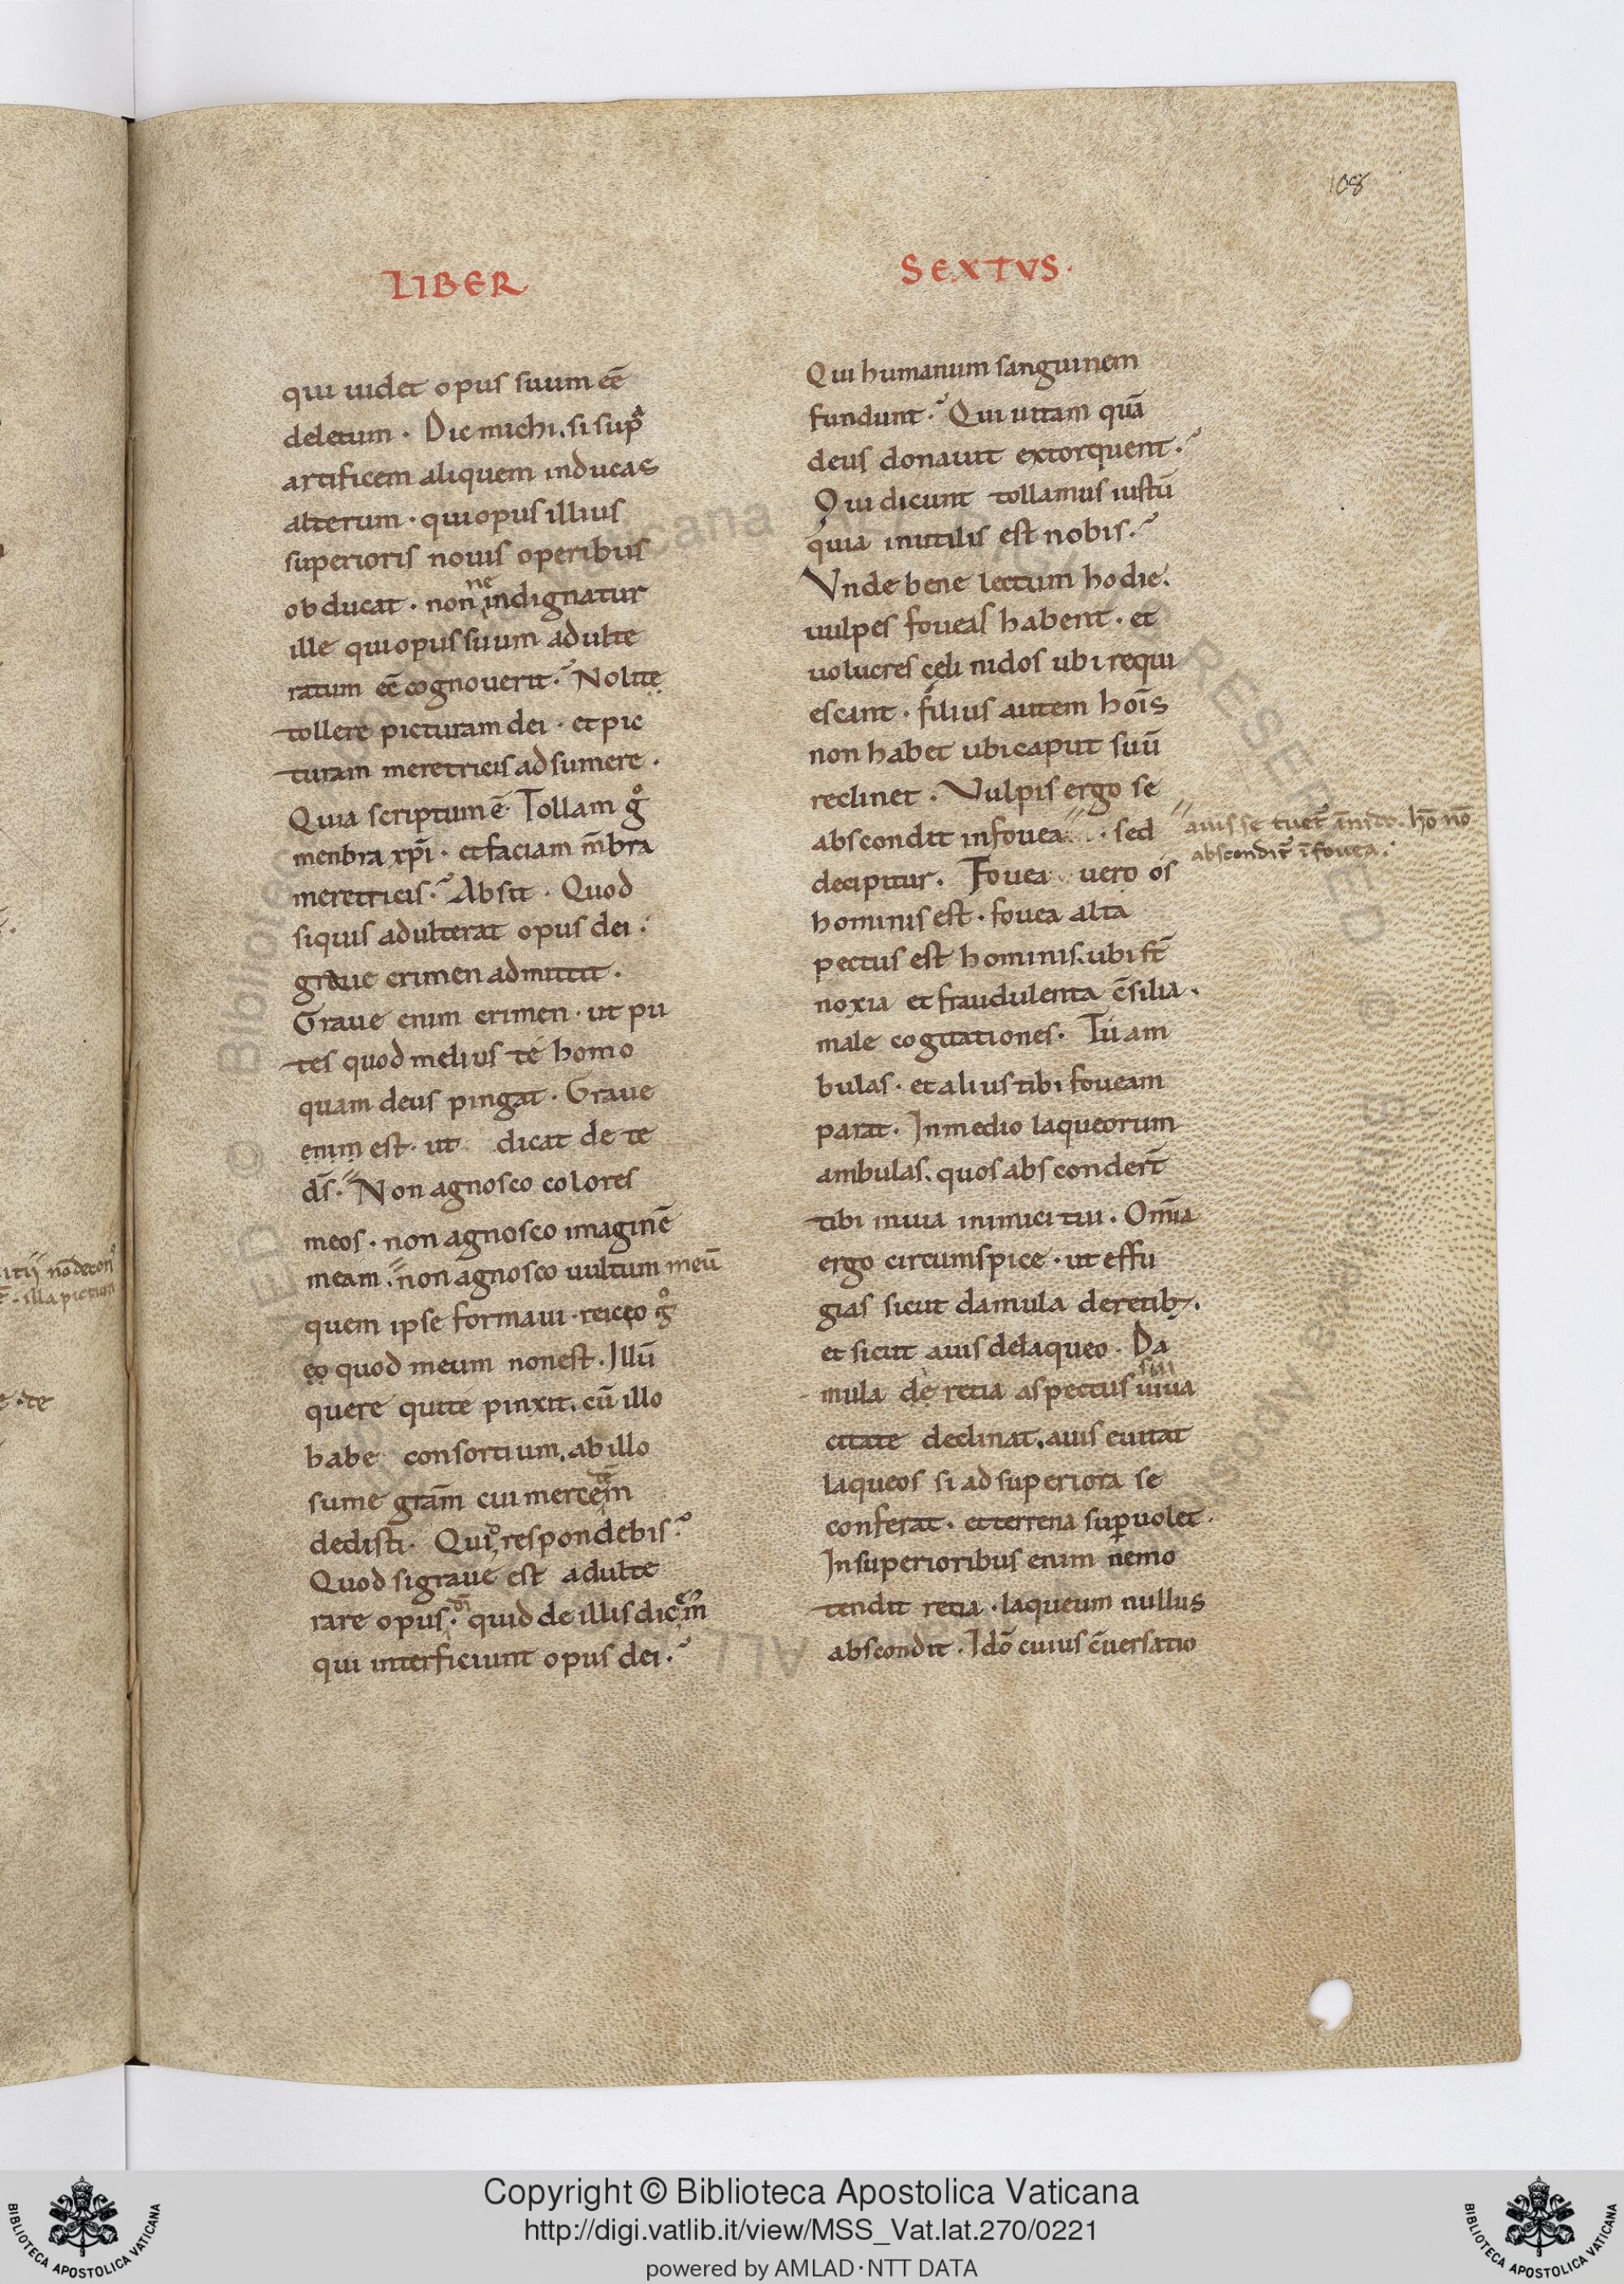 108
LIBER
SEXTVS.
qui uidet opus suum eē
deletum. Dic michi. si supᵃ
artificem aliquem inducas
alterum. qui opus illius
superioris nouis operibus
ob ducat. non ne indignatur
ille qui opus suum adulte
ratum eē cognouerit? Nolite
tollere picturam dei. et pic
turam meretricis adsumere.
Quia scriptum ē. Tollam gͦ
menbra xp̄i. et faciam m̄bra
meretricis? Absit. Quod
siquis adulterat opus dei.
graue crimen admittit.
Graue enim crimen. ut pu
tes quod melius te homo
quam deus pingat. Graue
enim est. ut dicat de te
ds̄. Non agnosco colores
meos. non agnosco imaginē
meam. non agnosco uultum meū
quem ipse formaui. reiceo gͦ
eo quod meum non est. Illū
quere qui te pinxit. cū illo
habe consortium. ab illo
sume grām cui mercedē
dedisti. Quid respondebis?
Quod si graue est adulte
rare opus dī. quid de illis dicem̄
qui interficiunt opus dei?
Qui humanum sanguinem
fundunt? Qui uitam quā
deus donauit extorquent?
Qui dicunt tollamus iustū
quia inutilis est nobis?
Vnde bene lectum hodie.
uulpes foueas habent. et
uolucres cęli nidos ubi requi
escant. filius autem hoīs
non habet ubi caput suū
reclinet. Vulpis ergo se
abscondit in fouea. sed
decipitur. Fouea uero os
hominis est. fouea alta
pectus est hominis. ubi st̄
noxia et fraudulenta c̄silia.
male cogitationes. Tu am
bulas. et alius tibi foueam
parat. In medio laqueorum
ambulas. quos absconder̄t
tibi in uia inimici tui. Om̄ia
ergo circumspice. ut effu
gias sicut damula de retib;.
et sicut auis de laqueo. Da
mula de retia aspectus sui uiua
citate declinat. auis euitat
laqueos si ad superiora se
conferat. et terrena supuolet.
In superioribus enim nemo
tendit retia. laqueum nullus
abscondit. Idō cuius c̄uersatio
abscondit̄ ī fouea.